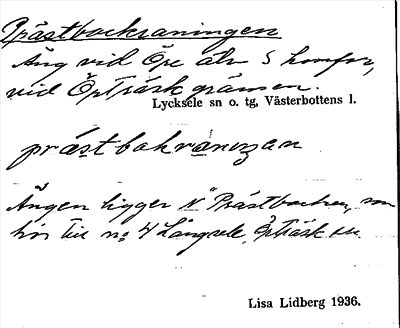 Prästbackraningen
Äng vid Öre älv 5 km för,
vid Örträsk gränsen.
Lycksele sn o. tg, Västerbottens l.
präsțbakrạnıŋan
Ängen ligger N "Prästbacken, som
hör till n:o 4 Långsele, Örträsk sn.
Lisa Lidberg 1936.